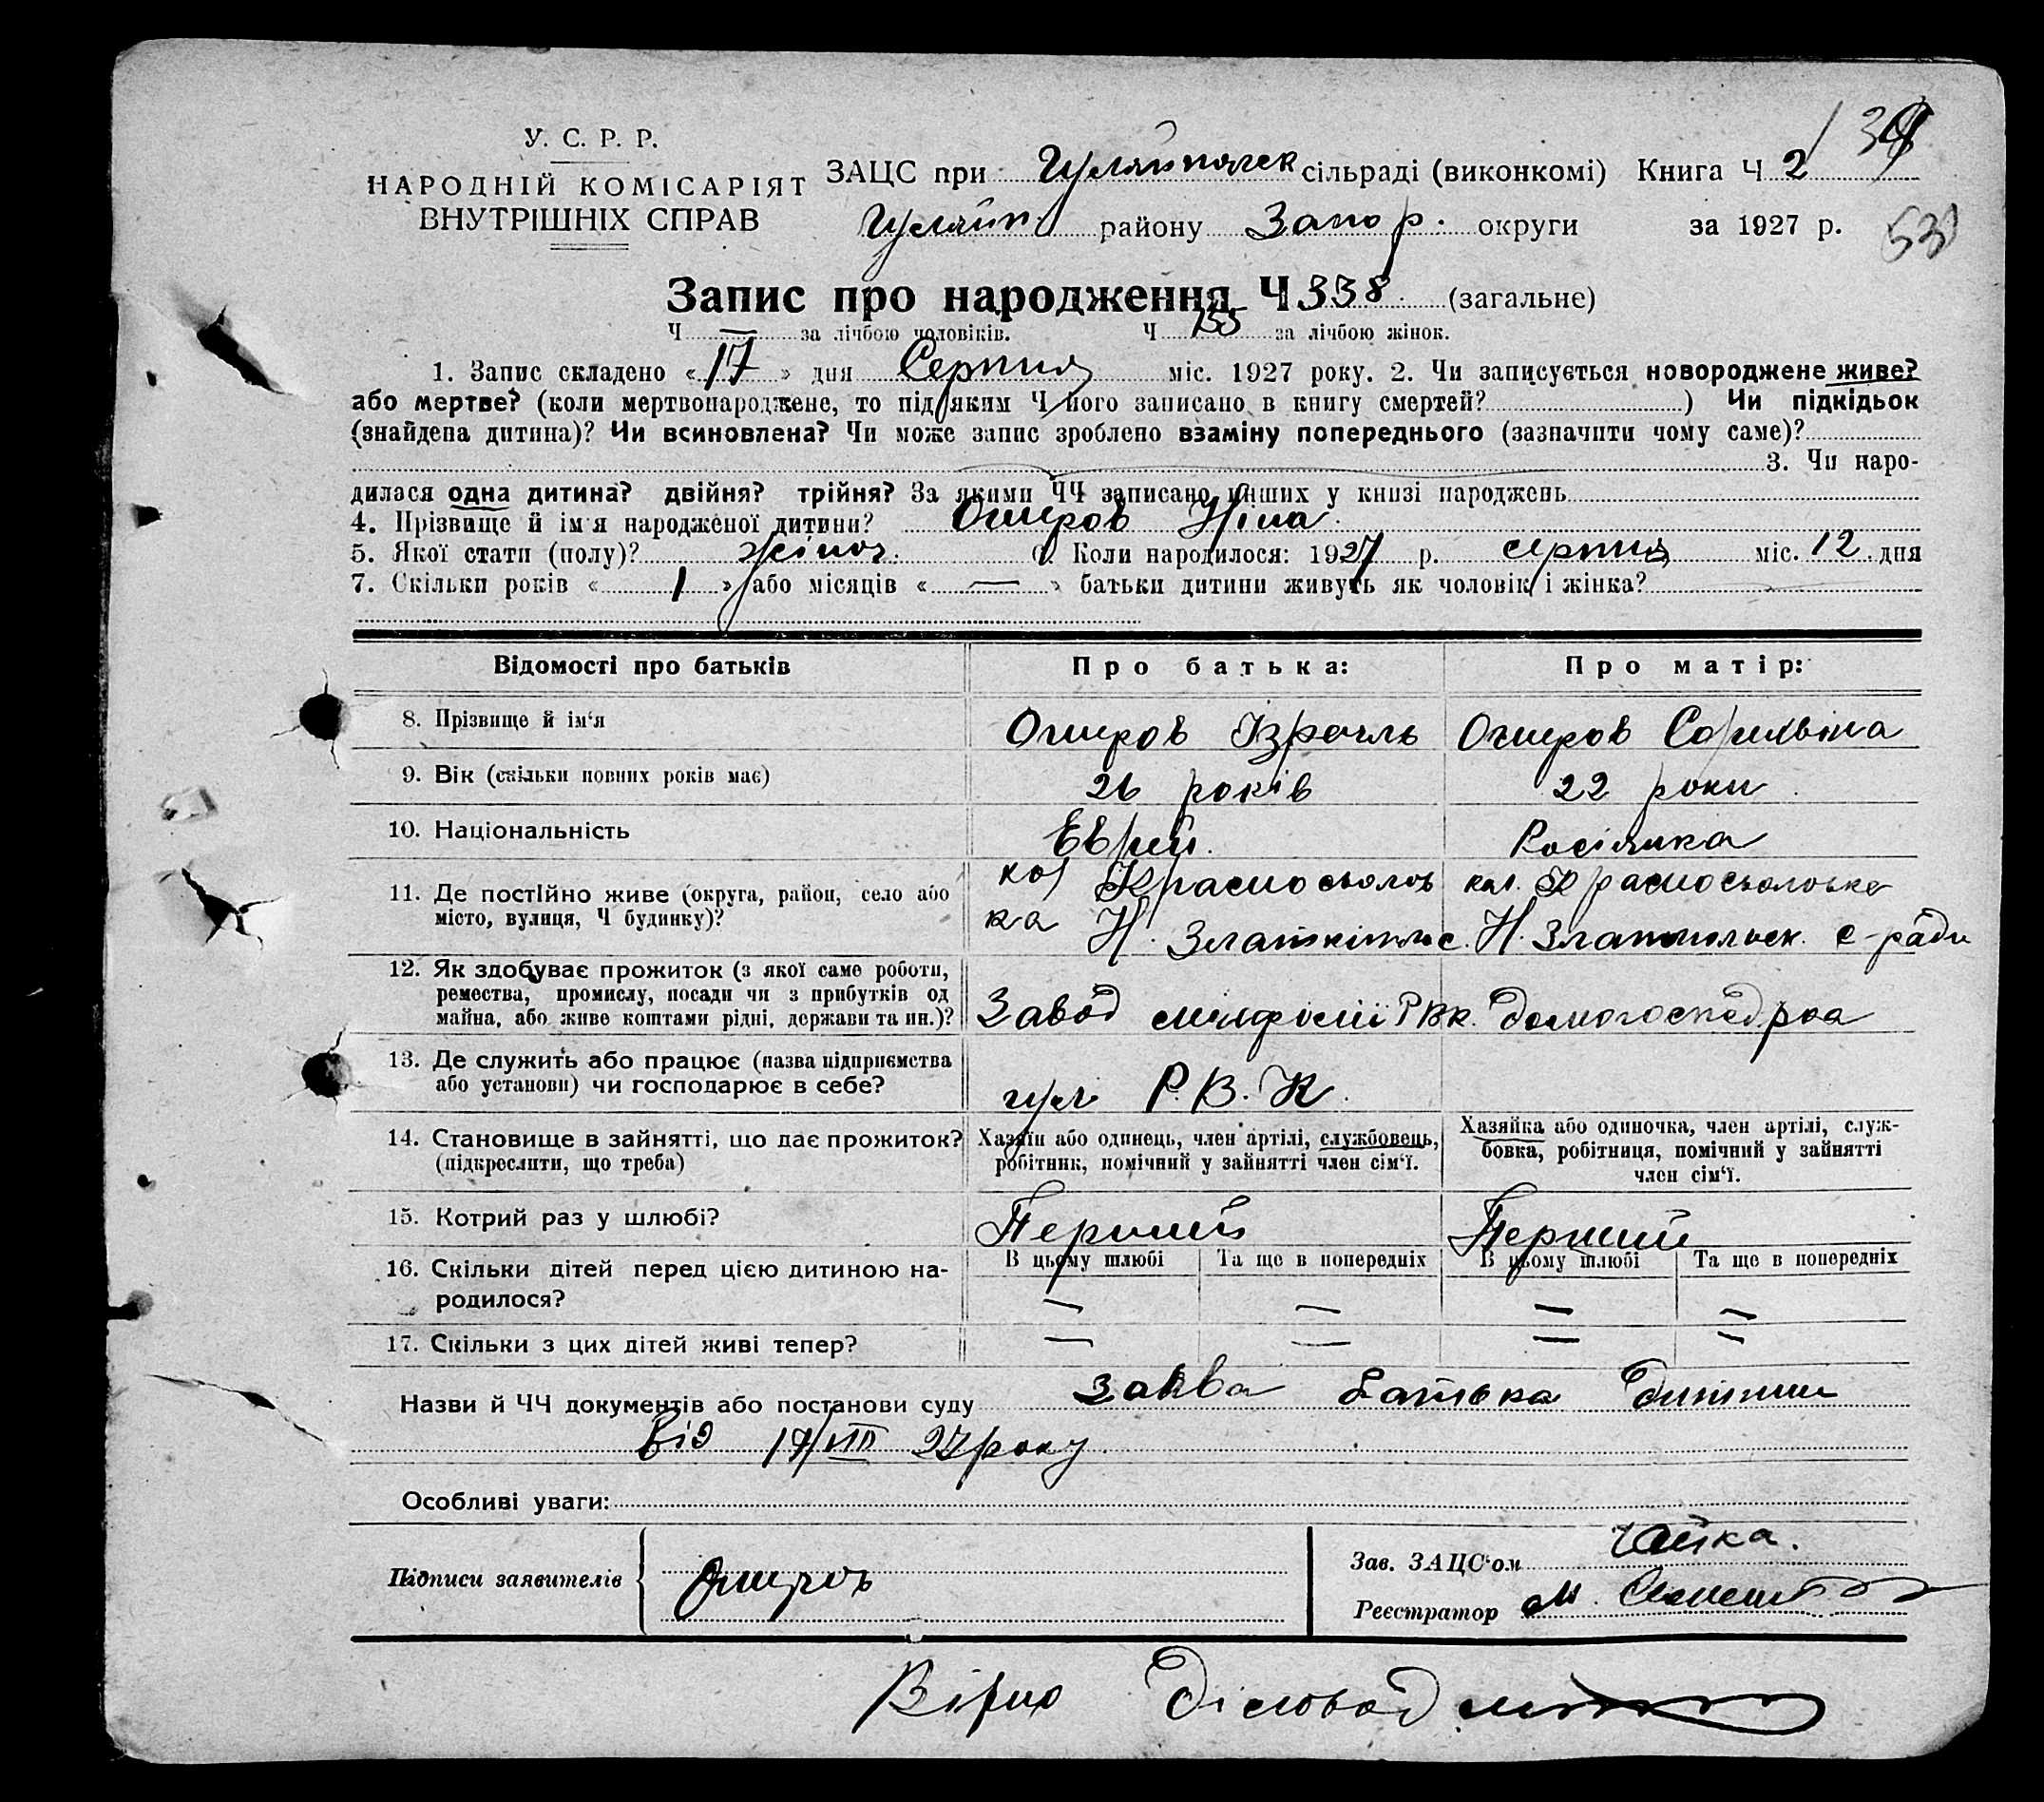 У. С. Р. Р.
НАРОДНІЙ КОМІСАРІЯТ
ВНУТРІШНІХ СПРАВ
ЗАЦС при Гуляйполек сільраді (виконкомі) Книга Ч 2
Гуляйп. району Запор. округи за 1927 р.
Запис про народження Ч 338 (загальне)
Ч — за лічбою чоловіків. Ч 155 за лічбою жінок.
1. Запис складено « 17 » дня Серпня міс. 1927 року. 2. Чи записується новороджене живе?
або мертве? (коли мертвонароджене, то під яким Ч його записано в книгу смертей? ) Чи підкідьок
(знайдена дитина)? Чи всиновлена? Чи може запис зроблено взаміну попереднього (зазначити чому саме)?
3. Чи наро-
дилася одна дитина? двійня? трійня? За якими ЧЧ записано інших у книзі народжень
4. Прізвище й ім'я народженої дитини? Ошеров Ніна.
5. Якої стати (полу)? жіноч. 6. Коли народилося: 1927 р. серпня міс. 12 дня
7. Скільки років « 1 » або місяців « — » батьки дитини живуть як чоловік і жінка?
Відомості про батьків Про батька: Про матір:
8. Прізвище й ім'я Ошеров Ізраїль Ошеров
9. Вік (скільки повних років має) 26 років 22 роки
10. Національність Еврей. Росіянка
11. Де постійно живе (округа, район, село або
місто, вулиця, Ч будинку)?
кол Красносьолов кол. Красносьоловка
ка Н. Н. Златопольск. с-ради
12. Як здобуває прожиток (з якої саме роботи,
ремества, промислу, посади чи з прибутків од
майна, або живе коштами рідні, держави та ин.)?
Завод РВК. домогосподрка
13. Де служить або працює (назва підприємства
або установи) чи господарює в себе?
гул Р. В. К.
14. Становище в зайнятті, що дає прожиток?
(підкреслити, що треба)
Хазяїн або одинець, член артілі, службовець,
робітник, помічний у зайнятті член сім'ї.
Хазяйка або одиночка, член артілі, служ-
бовка, робітниця, помічний у зайнятті
член сім'ї.
15. Котрий раз у шлюбі? Перший Перший
16. Скільки дітей перед цією дитиною на-
родилося?
В цьому шлюбі Та ще в попередніх В цьому шлюбі Та ще в попередніх
— — — —
17. Скільки з цих дітей живі тепер? — — — —
Назви й ЧЧ документів або постанови суду заява батька дитини
від 17/VIII 27 року.
Особливі уваги:
Підписи заявителів Ошеров
Зав. ЗАЦС'ом Чайка.
Реєстратор М.
Вірно Діловод